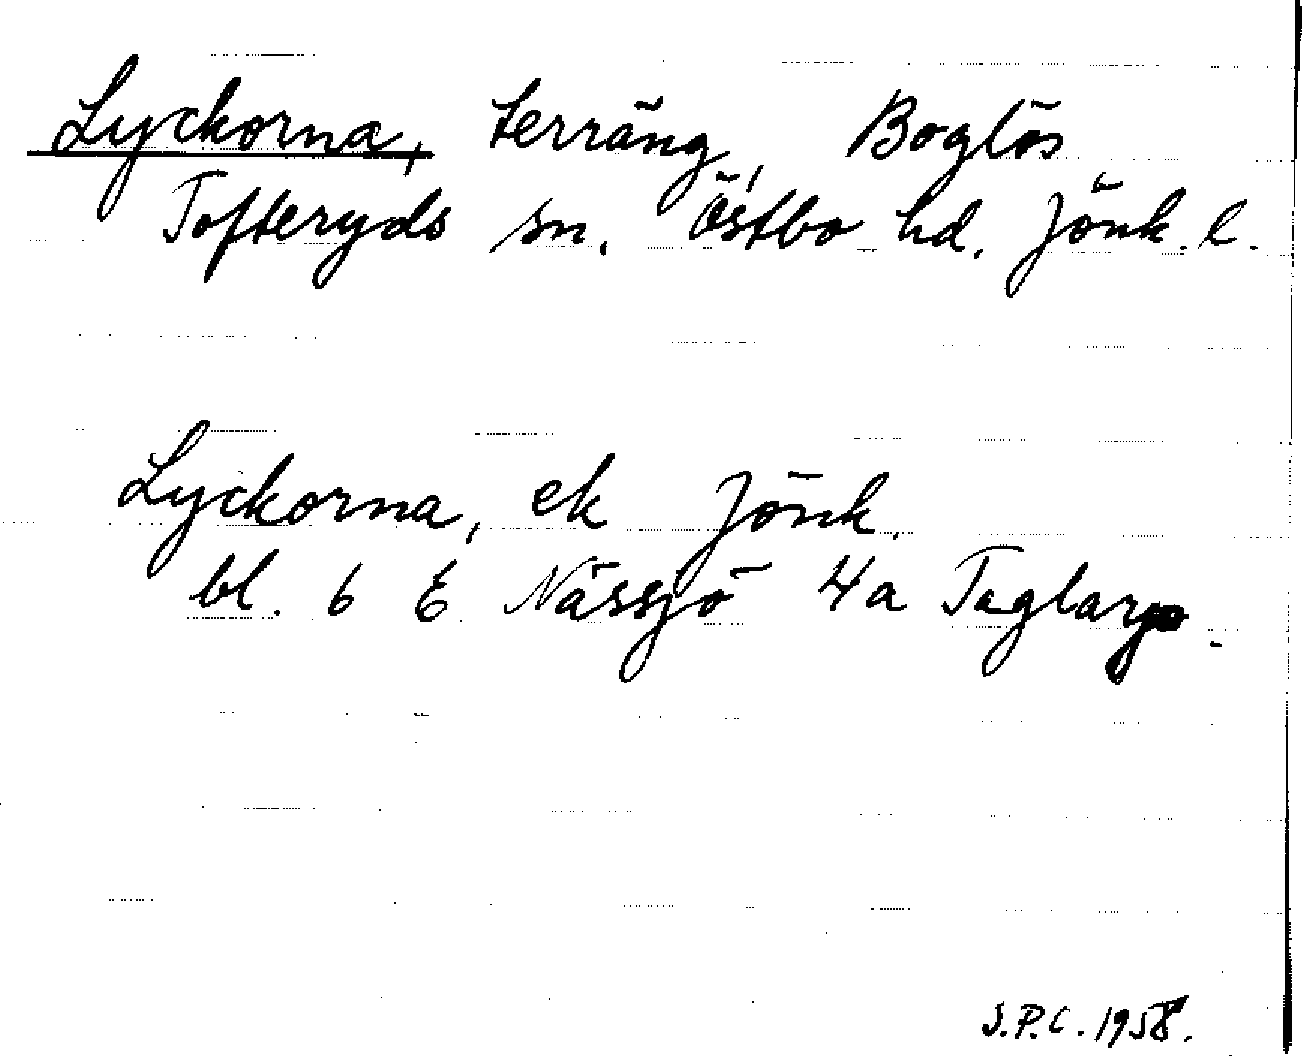 Lyckorna, terräng, Boglös
Tofteryds sn. Östbo hd. Jönk. l.
Lyckorna, ek Jönk.
bl. 6 E Nässjö 4a Taglarp.
S.P.C. 1958.